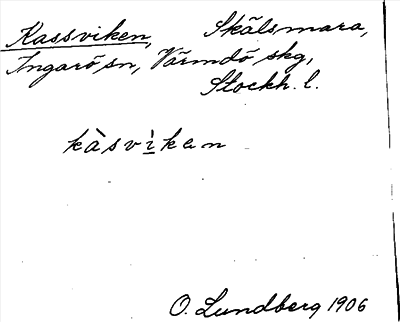 Kassviken, Skälsmara,
Ingarö sn, Värmdö skg,
Stockh. l.
kàsvìkan
O. Lundberg 1906